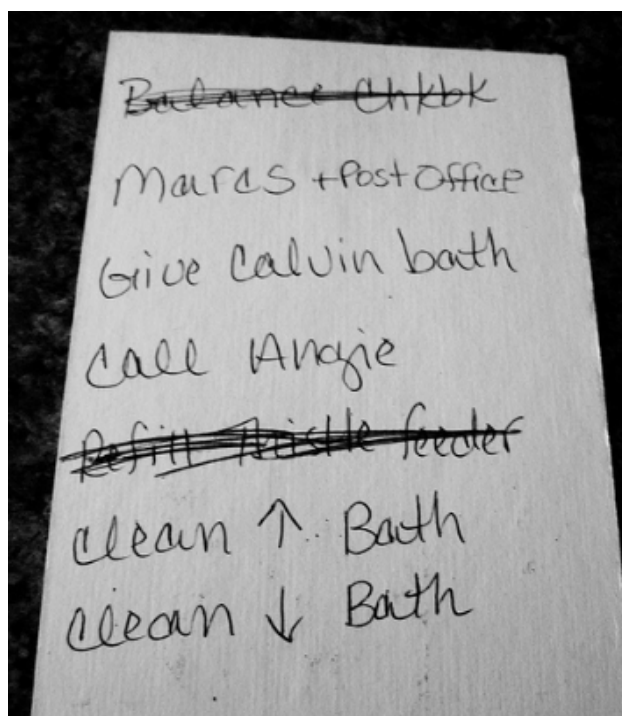 Balance Chkbk
Marcs + Post Office
Give Calvin bath
Call Angie
Refill thistle feeder
Clean ↑ Bath
Clean ↓ Bath